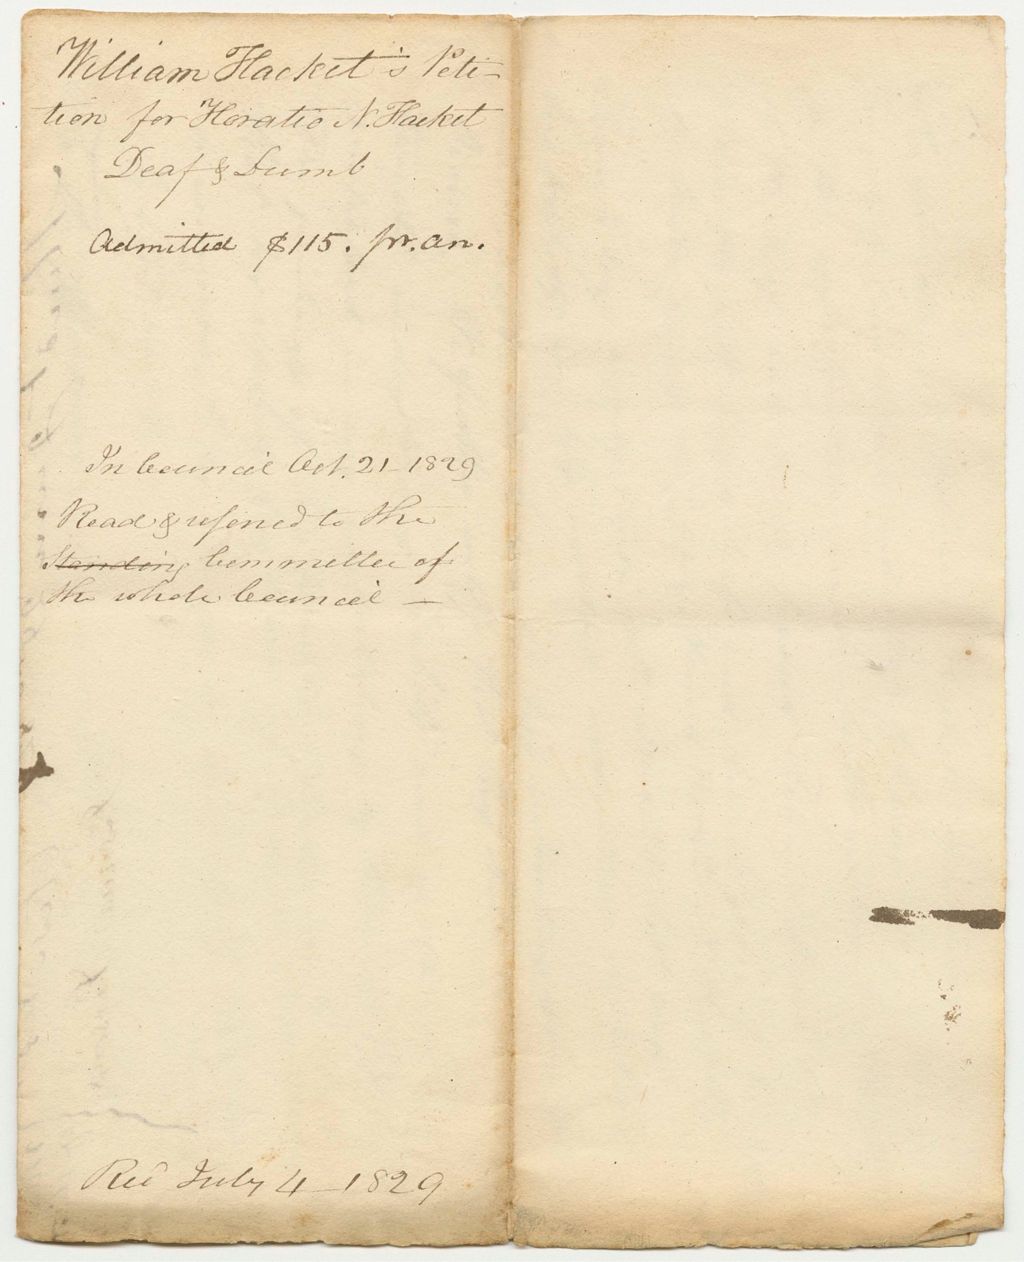 William Hacket's Peti-
tion for Horatio N. Hacket
Deaf & Dumb
Admitted $115. pr. an.
In Council Oct. 21 - 1829
Read & referred to the
Standing Committee of
the whole Council —
Rec'd July 4 - 1829